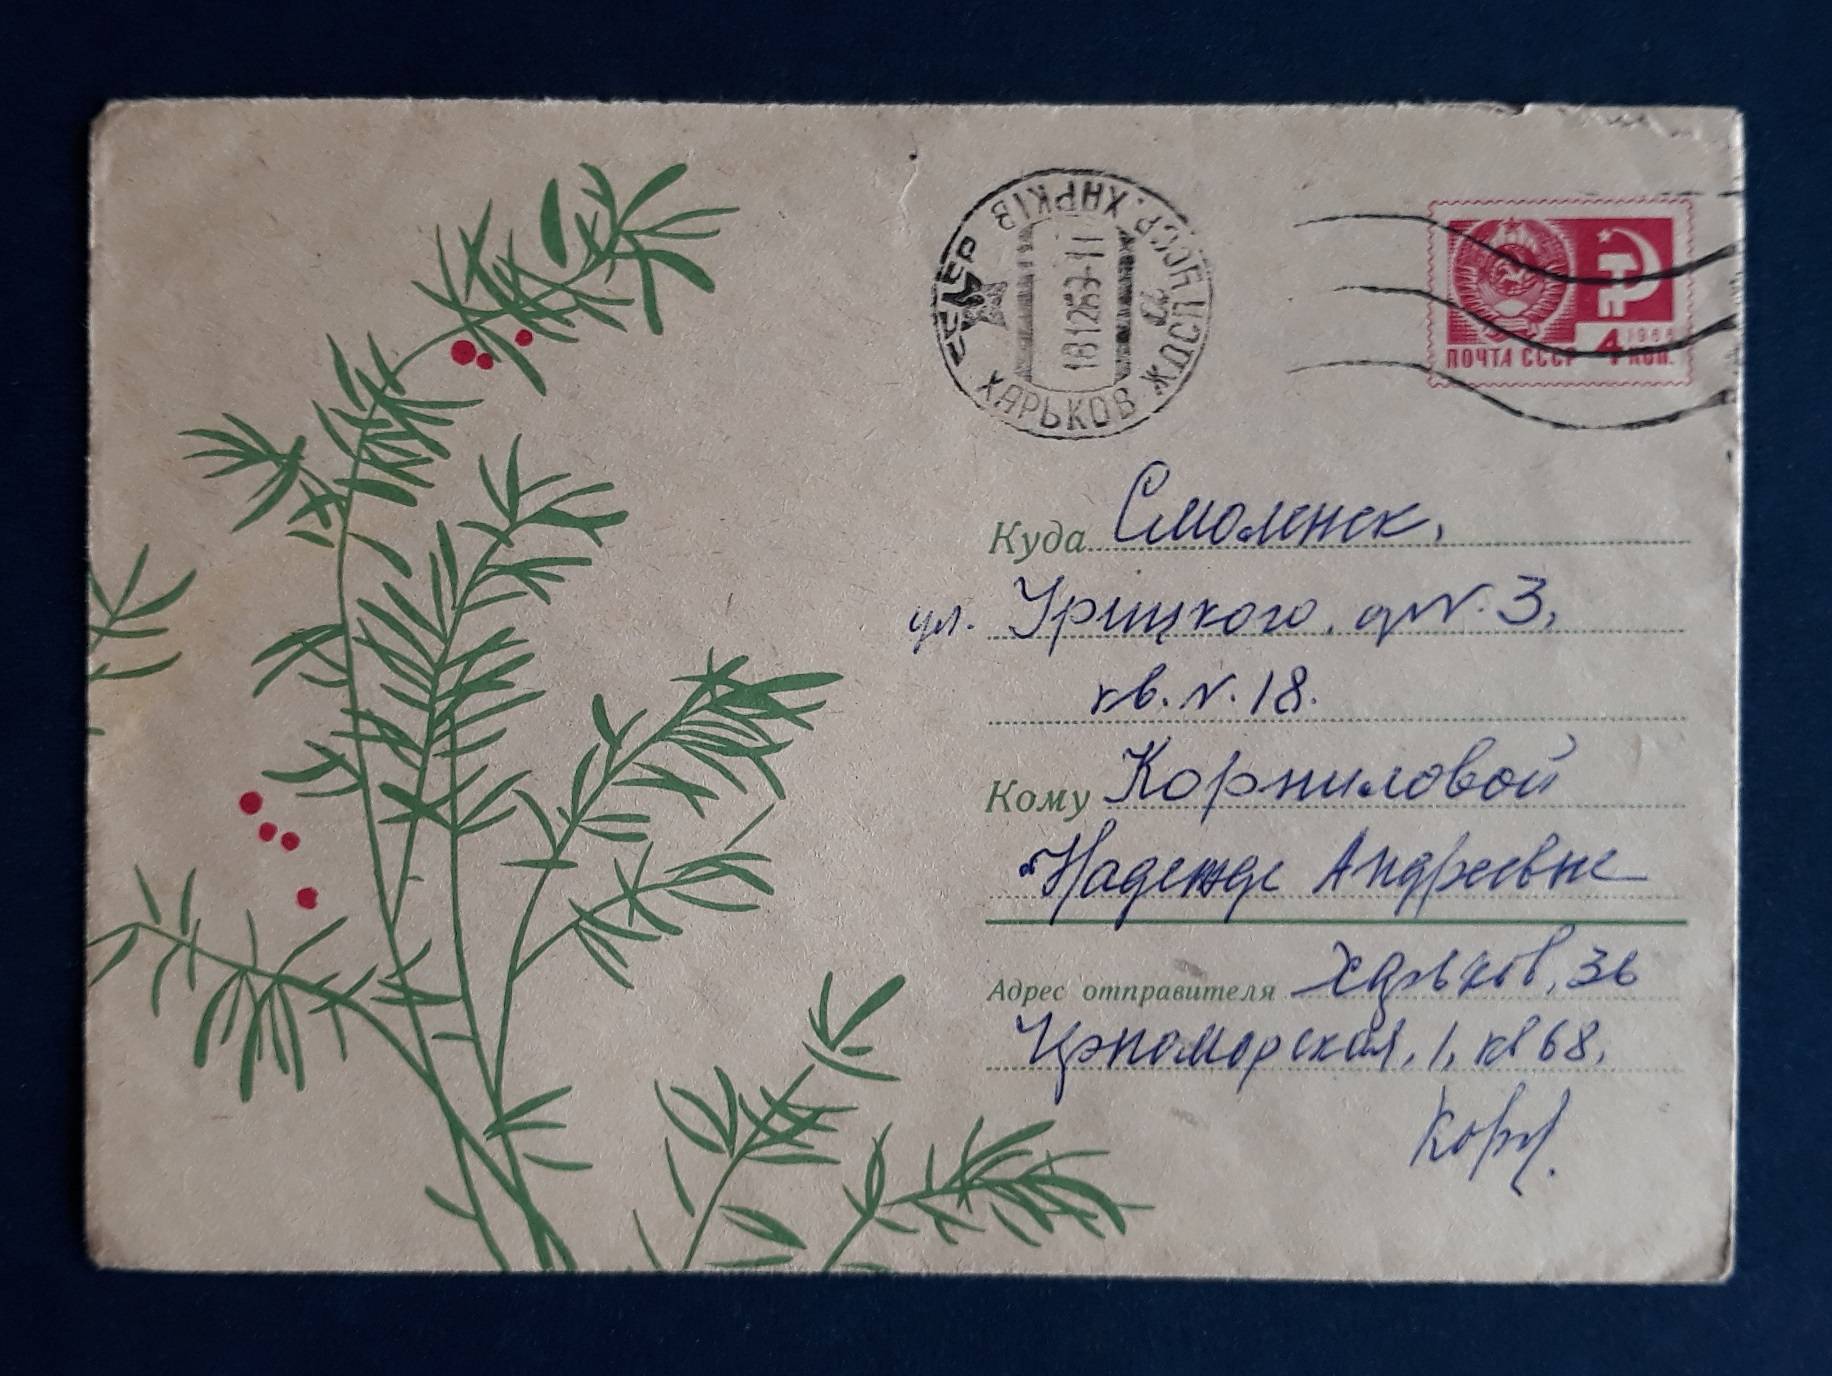 СССР ХАРЬКОВ ЖДСП УССР. ХАРКІВ
181269-11
ПОЧТА СССР 4 КОП.
1966
Куда Смоленск,
ул. Урицкого, д N. 3,
кв. N. 18.
Кому Корниловой
Надежде Андреевне
Адрес отправителя Харьков, 36
Черноморская, 1, кв 68,